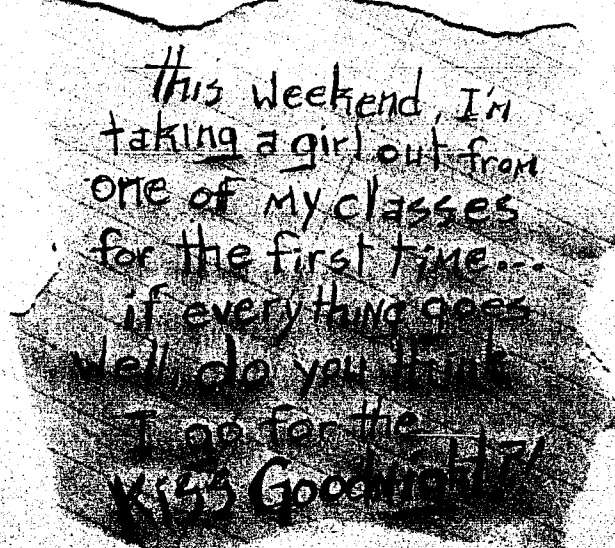 This weekend, I'm
taking a girl out from
one of my classes
for the first time...
if everything goes
well, do you think
I go for the
Kiss Goodnight?!